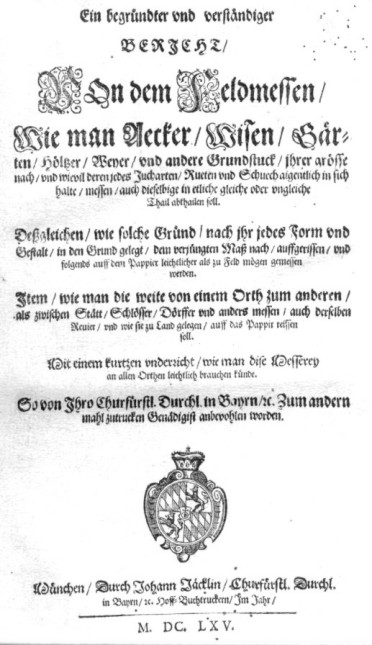 Ein begründter vnd verständiger
BERJCHT/
VOn dem Feldmessen/
Wie man Aecker/ Wisen/ Gär-
ten/ Höltzer/ Weyer/ vnd andere Grundstuck/ jhrer grösse
nach/ vnd wievil deren jedes Jucharten/ Rueten vnd Schuech aigentlich in sich
halte/ messen/ auch dieselbige in etliche gleiche oder vngleiche
Thail abthailen soll.
Deßgleichen/ wie solche Gründ/ nach jhr jedes Form vnd
Gestalt/ in den Grund gelegt/ dem verjüngten Maß nach/ auffgerissen/ vnd
folgends auff dem Pappier leichtlicher als zu Feld mögen gemessen
werden.
Jtem/ wie man die weite von einem Orth zum anderen/
als zwischen Stätt/ Schlösser/ Dörffer vnd anders messen/ auch derselben
Revier/ vnd wie sie zu Land gelegen/ auff das Pappir reissen
soll.
Mit einem kurtzen vnderricht/ wie man dise Messerey
an allen Orthen leichtlich brauchen künde.
So von Jhro Churfürstl. Durchl. in Bayrn/ ꝛc. Zum andern
mahl zutrucken Genädigist anbevohlen worden.
München/ Durch Johann Jäcklin/ Churfürstl. Durchl.
in Bayrn/ ꝛc. Hoff-Buchtruckern/ Jm Jahr/
M. DC. LXV.